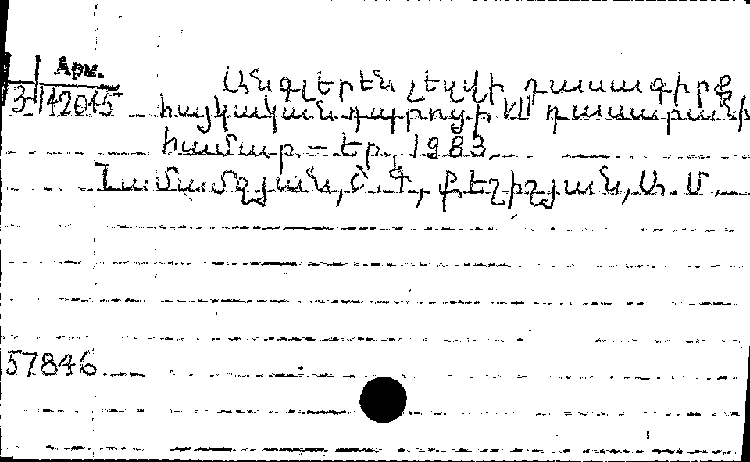 Арм.
3-42015
Անգլերեն լեզվի դասագիրք
հայկական դպրոցի VII դասարանի
համար – Եր., 1983
57846